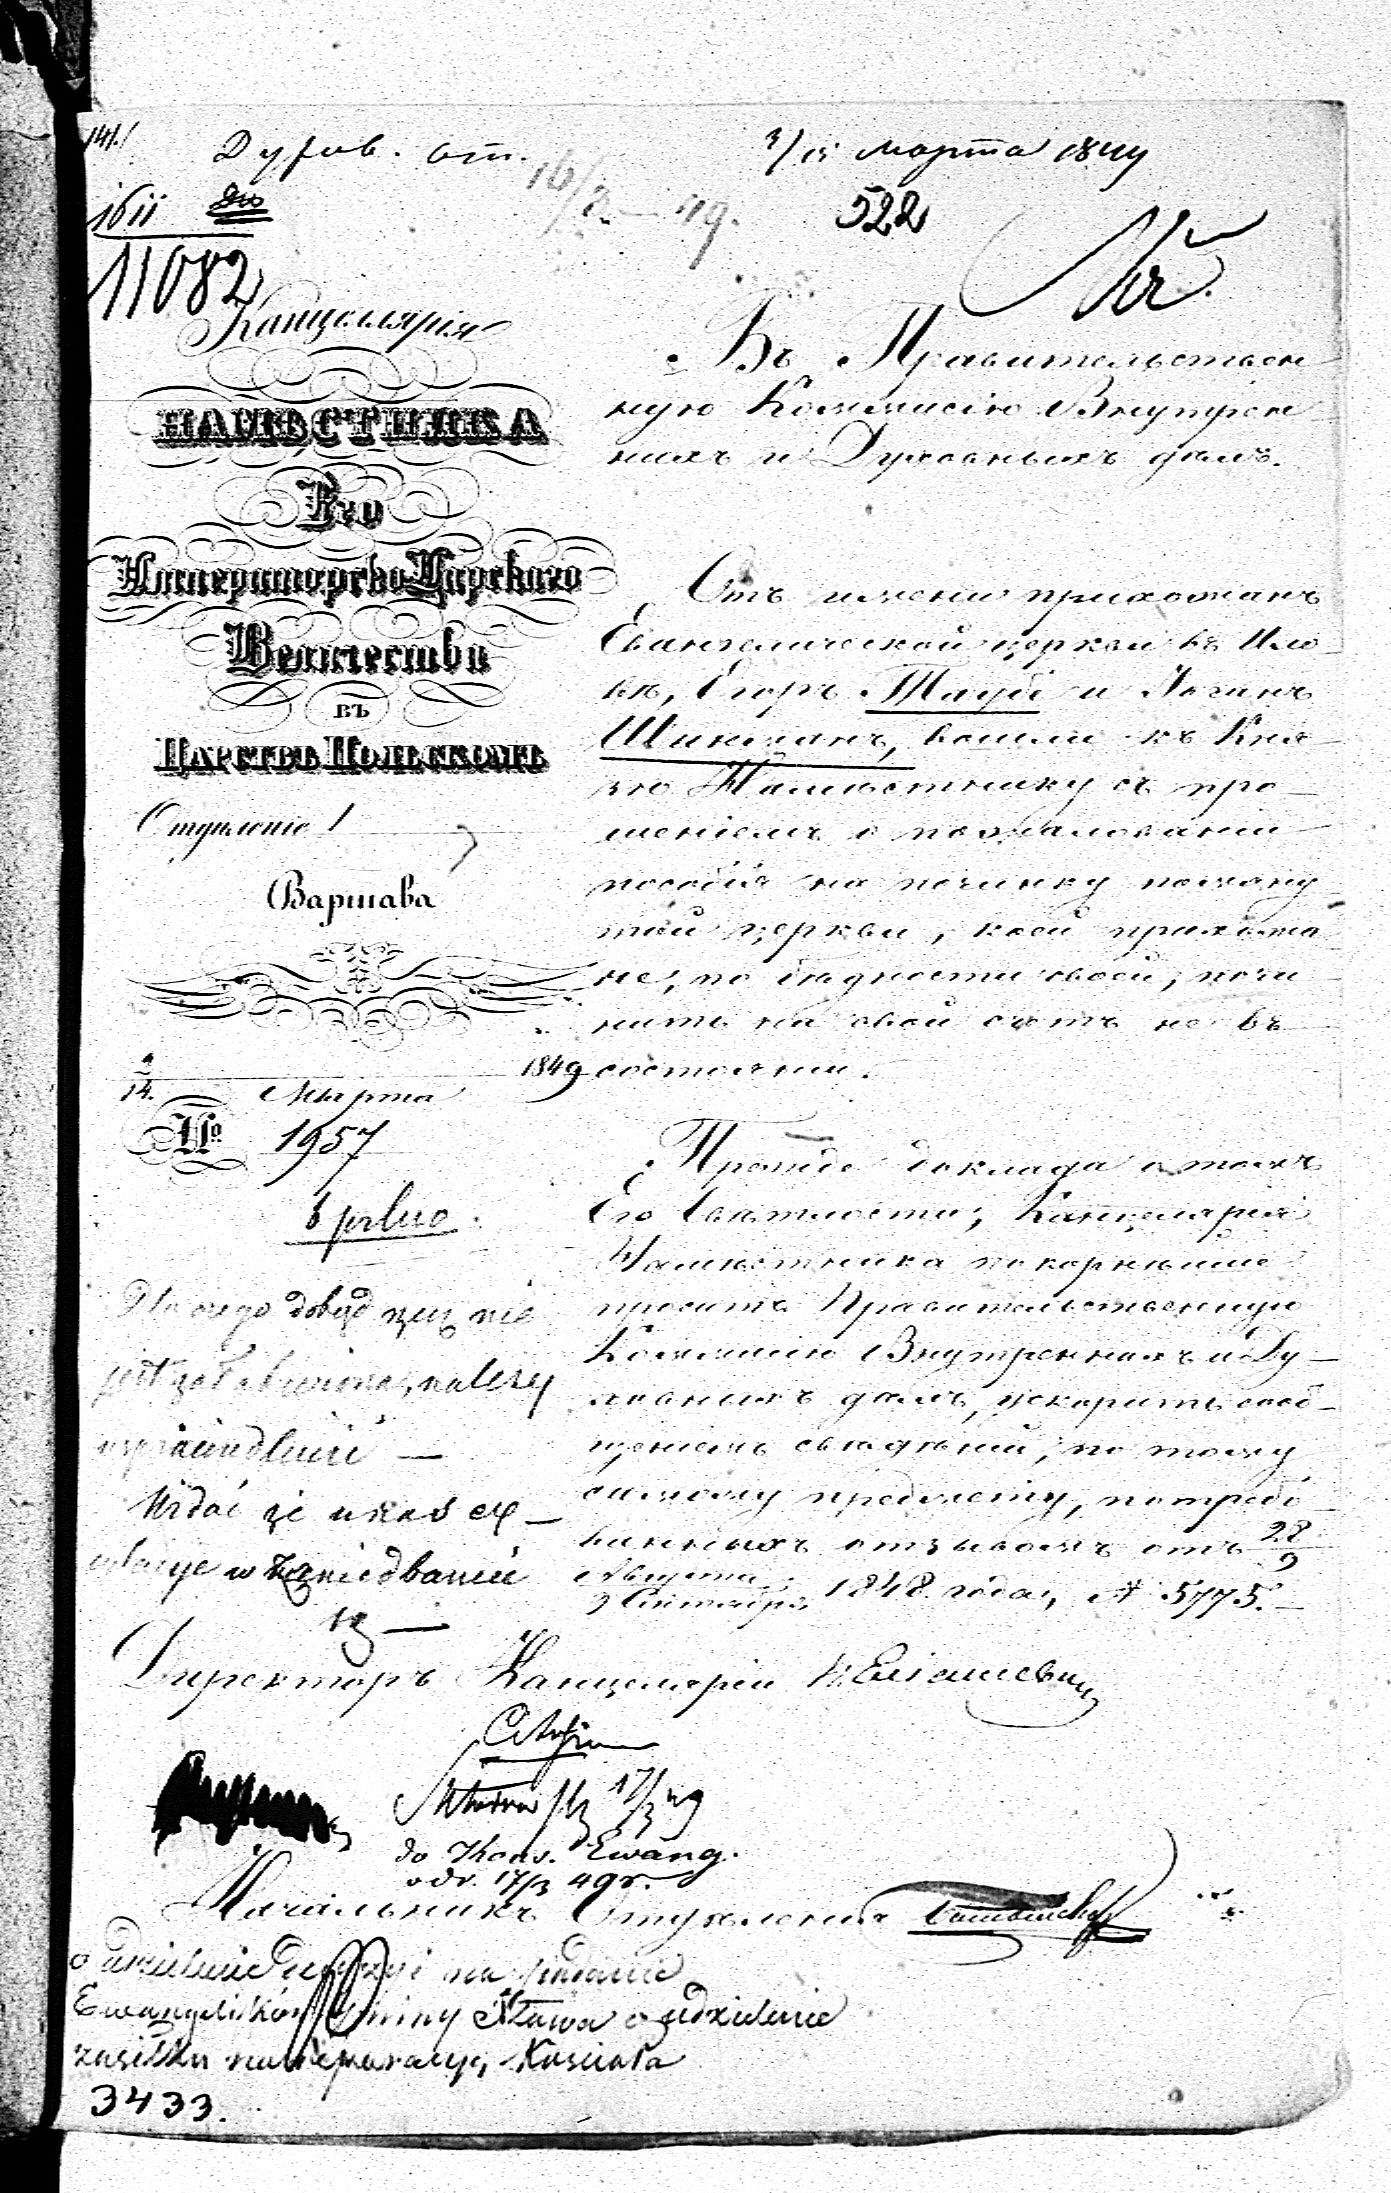 Духов. от.
3/15 Марта 1849
1611
16/3 – 49.
522
11082
Канцелярія
НАМѢСТНИКА
Его
Императорско-Царскаго
Величества
въ
Царствѣ Польскомъ
Отдѣленіе 1
Варшава
14. Марта 1849
№ 1957
Въ Правительствен
ную Коммисію Внутрен
нихъ и Духовныхъ дѣлъ.
Отъ имени прихожанъ
Евангелической церкви въ Ило
вѣ, Егоръ Таубе и Иоганъ
Шикманъ, вошли къ Кня
зю Намѣстнику съ про
шеніемъ о пожалованіи
пособія на починку помяну
той церкви, коей прихожа
не, по бѣдности своей, почи
нить на свой счетъ не въ
состояніи.
Прежде доклада о томъ
Его Свѣтлости, Канцелярія
Намѣстника покорнѣйше
проситъ Правительственную
Коммисію Внутреннихъ и Ду
ховныхъ дѣлъ, ускорить сооб
щеніемъ свѣдѣній, по тому
самому предмету, потребо
ванныхъ отзывомъ отъ 28/9
Августа
Сентября 1848 года, № 5775.
b pilno.
dotąd nie
jest należy
Widać że
w zaniedbaniu
Директоръ Канцеляріи
17/3 49
do Kons. Ewang.
odr. 17/3 49 r.
Начальникъ Отдѣленія
o udzielenie decyzyi na podanie
Ewangelików gminy Iłowa o udzielenie
zasiłku na reperacyę Kościoła
3433.